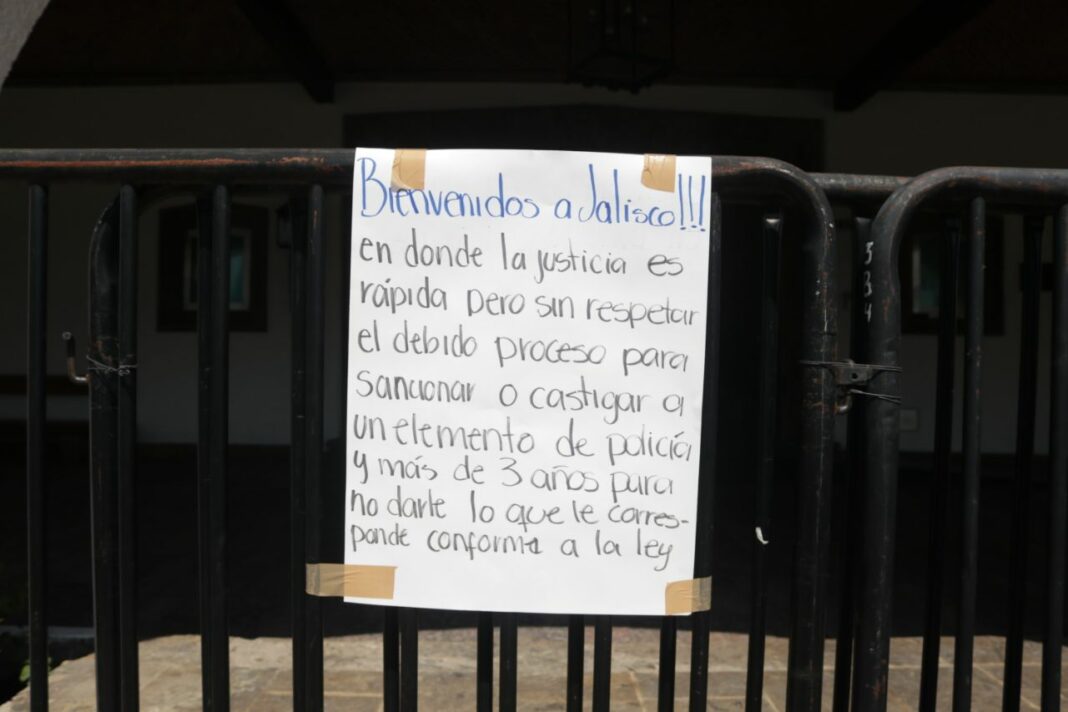 Bienvenidos a Jalisco!!!
en donde la justicia es
rápida pero sin respetar
el debido proceso para
sancionar o castigar a
un elemento de policía
y más de 3 años para
no darle lo que le corres-
ponde conforme a la ley
334